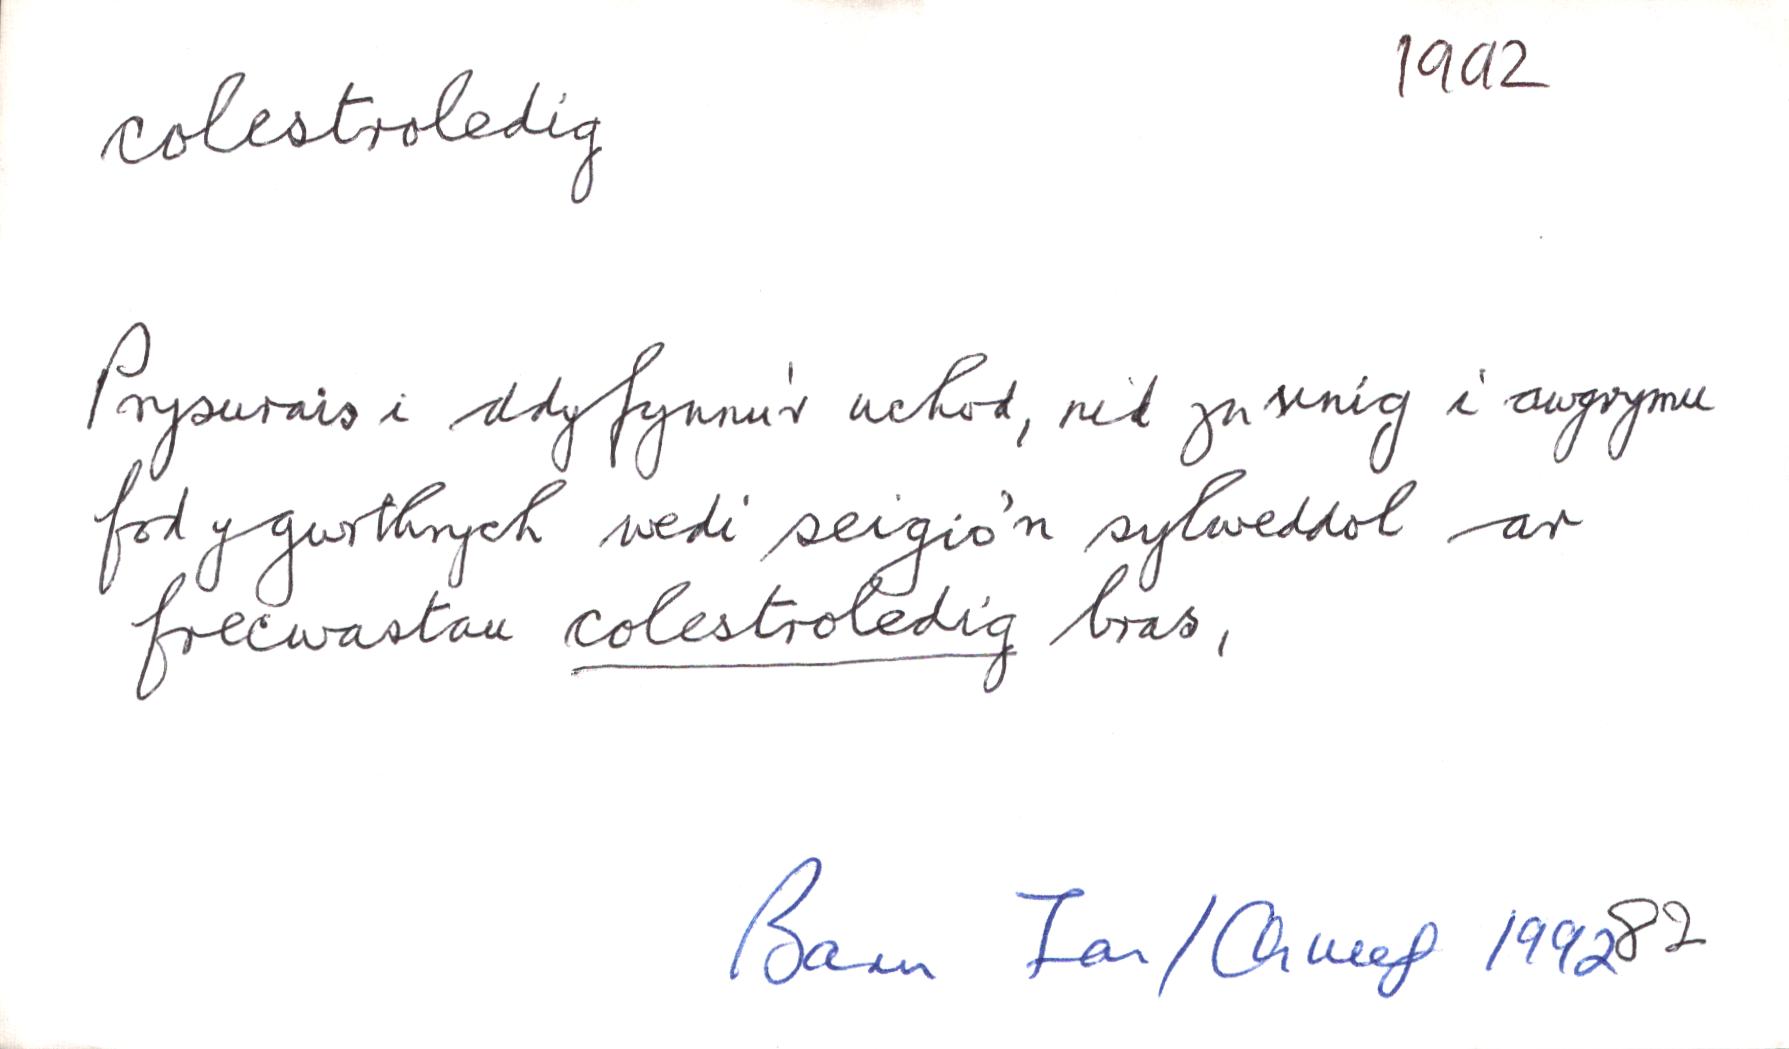 1992
colestroledig
Prysurais i ddyfynnu'r uchod, nid yn unig i awgrymu
fod y gwrthrych wedi seigio'n sylweddol ar
frecwastau colestroledig bras,
Barn Ion/Chwef 1992 82